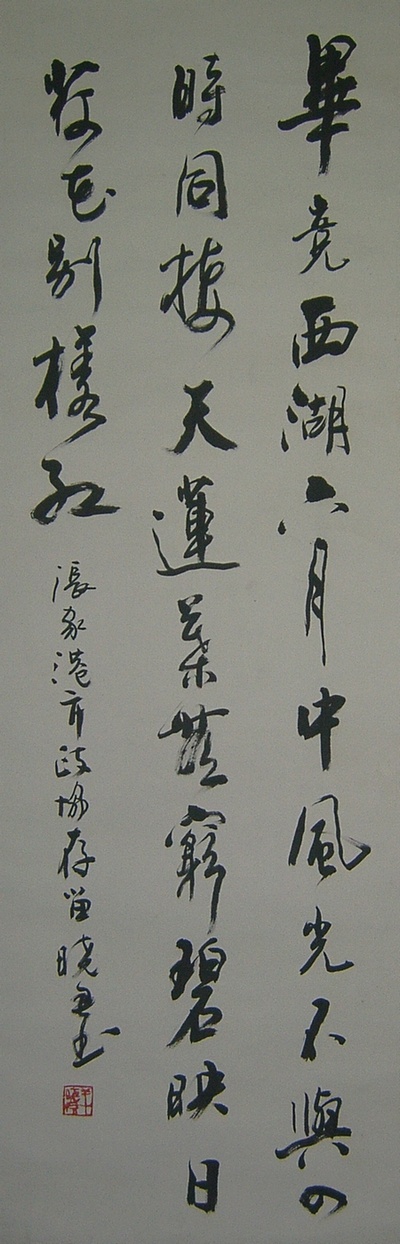 畢竟西湖六月中風光不與四
時同接天蓮葉無窮碧映日
荷花别樣紅
張家港市政協存留曉書